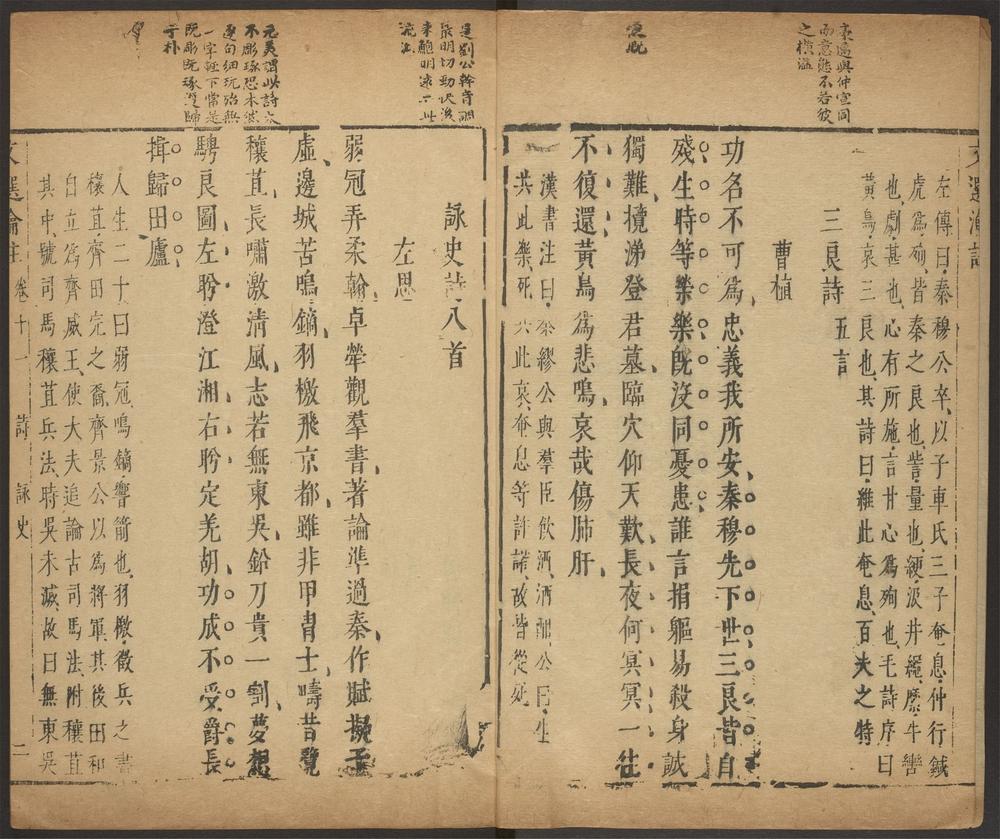 秦遒與仲宣同
而意態不若彼
之橫溢
左傳曰秦穆公卒以子車氏三子奄息仲行鍼
虎爲殉皆秦之良也訾量也綆汲井繩縻牛轡
也劇甚也心有所施言甘心爲殉也毛詩序曰
黃鳥哀三良也其詩曰維此奄息百夫之特
三良詩 五言
曹植
功名不可爲忠義我所安秦穆先下世三良皆自
殘生時等榮樂既沒同憂患誰言捐軀易殺身誠
獨難攬涕登君墓臨穴仰天歎長夜何冥冥一往
不復還黃鳥爲悲鳴哀哉傷肺肝
漢書注曰秦繆公與羣臣飲酒酒酣公曰生
共此樂死共此哀奄息等許諾故皆從死
是劉公幹音調
最明切勁快後
來鮑明遠一世
流出
詠史詩八首
左思
弱冠弄柔翰卓犖觀羣書著論準過秦作賦擬子
虛邊城苦鳴鏑羽檄飛京都雖非甲冑士疇昔覽
穰苴長嘯激清風志若無東吳鉛刀貴一割夢想
騁良圖左眄澄江湘右盻定羌胡功成不受爵長
揖歸田廬
元美謂此詩太
不彫琢恐未然
逐句細玩殆無
一字輕下常是
既彫既琢還歸
于朴
人生二十曰弱冠鳴鏑響箭也羽檄徵兵之書
穰苴齊田完之裔齊景公以爲將軍其後田和
自立爲齊威王使大夫追論古司馬法附穰苴
其中號司馬穰苴兵法時吳未滅故曰無東吳
卷十一 詩 詠史 二